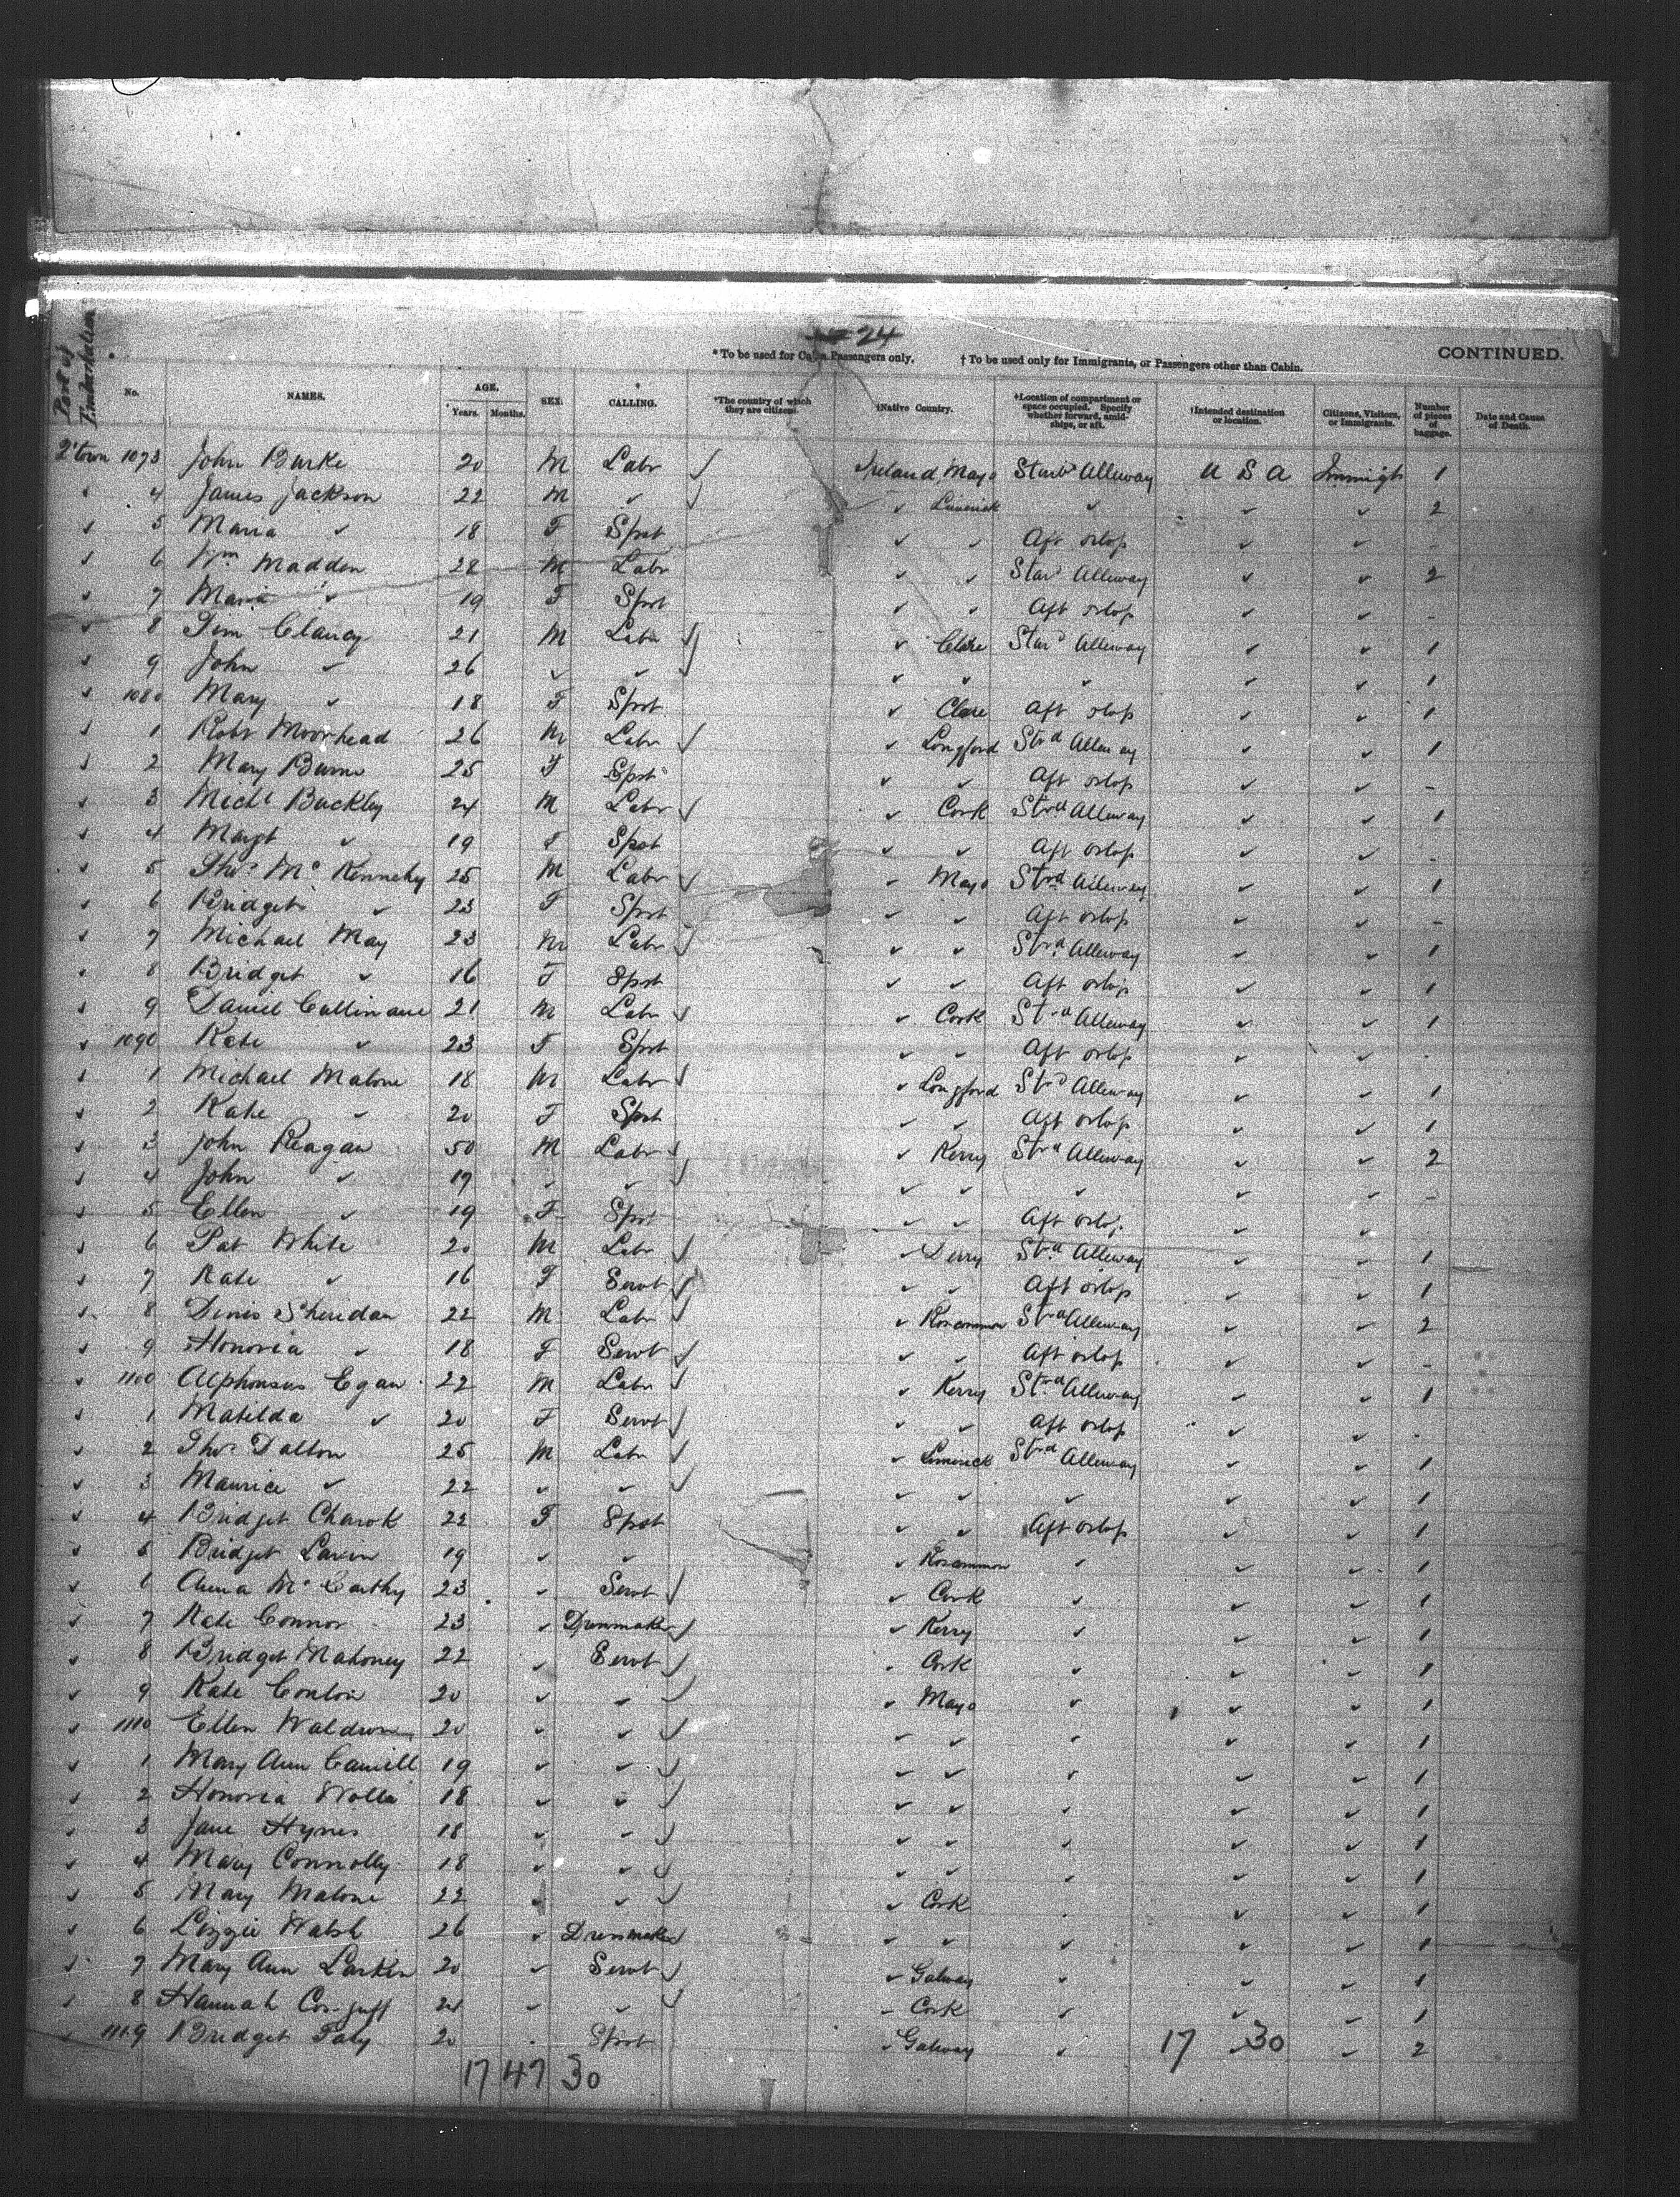 24
Port of Embarkation
* To be used for Cabin Passengers only. † To be used only for Immigrants, or Passengers other than Cabin. CONTINUED.
No. NAMES. AGE. Years. Months. SEX. CALLING. *The country of which they are citizens. †Native Country. †Location of compartment or space occupied. Specify whether forward, amidships, or aft. †Intended destination or location. Citizens, Visitors, or Immigrants. Number of pieces of baggage. Date and Cause of Death.
Q'town 1073 John Burke 20 M Labr Ireland Mayo Starbd Alleway U S A Immigt 1
✓ 4 James Jackson 22 M ✓ ✓ Limerick ✓ ✓ ✓ 2
✓ 5 Maria ✓ 18 F Spst ✓ ✓ Aft orlop ✓ ✓ -
✓ 6 Wm Madden 28 M Labr ✓ ✓ Stard Alleway ✓ ✓ 2
✓ 7 Maria ✓ 19 F Spst ✓ ✓ Aft orlop ✓ ✓ -
✓ 8 Tim Clancy 21 M Labr ✓ Clare Stard Alleway ✓ ✓ 1
✓ 9 John ✓ 26 ✓ ✓ ✓ ✓ ✓ ✓ ✓ 1
✓ 1080 Mary ✓ 18 F Spst ✓ Clare Aft olop ✓ ✓ 1
✓ 1 Robt Moorhead 26 M Labr ✓ Longford Strd Alleway ✓ ✓ 1
✓ 2 Mary Burns 25 F Spst ✓ ✓ Aft orlop ✓ ✓ -
✓ 3 Michl Buckley 24 M Labr ✓ Cork Strd Alleway ✓ ✓ 1
✓ 4 Margt ✓ 19 F Spst ✓ ✓ Aft orlop ✓ ✓ -
✓ 5 Thos McKennehy 25 M Labr ✓ Mayo Strd Alleway ✓ ✓ 1
✓ 6 Bridget ✓ 23 F Spst ✓ ✓ Aft orlop ✓ ✓ -
✓ 7 Michael May 23 M Labr ✓ ✓ Strd Alleway ✓ ✓ 1
✓ 8 Bridget ✓ 16 F Spst ✓ ✓ Aft orlop ✓ ✓ 1
✓ 9 Daniel Cullinane 21 M Labr ✓ Cork Strd Alleway ✓ ✓ 1
✓ 1090 Kate ✓ 23 F Spst ✓ ✓ Aft orlop ✓ ✓ -
✓ 1 Michael Malone 18 M Labr ✓ Longford Strd Alleway ✓ ✓ 1
✓ 2 Kate ✓ 20 F Spst ✓ ✓ Aft orlop ✓ ✓ 1
✓ 3 John Reagan 50 M Labr ✓ Kerry Strd Alleway ✓ ✓ 2
✓ 4 John ✓ 19 ✓ ✓ ✓ ✓ ✓ ✓ ✓ -
✓ 5 Ellen ✓ 19 F Spst ✓ ✓ Aft orlop ✓ ✓
✓ 6 Pat White 20 M Labr ✓ Derry Strd Alleway ✓ ✓ 1
✓ 7 Kate ✓ 16 F Servt ✓ ✓ Aft orlop ✓ ✓ 1
✓ 8 Denis Sheridan 22 M Labr ✓ Roscommon Strd Alleway ✓ ✓ 2
✓ 9 Honoria ✓ 18 F Servt ✓ ✓ Aft orlop ✓ ✓ -
✓ 1100 Alphonsus Egan 22 M Labr ✓ Kerry Strd Alleway ✓ ✓ 1
✓ 1 Matilda ✓ 20 F Servt ✓ ✓ Aft orlop ✓ ✓ -
✓ 2 Thos Dalton 25 M Labr ✓ Limerick Strd Alleway ✓ ✓ 1
✓ 3 Maurice ✓ 22 ✓ ✓ ✓ ✓ ✓ ✓ ✓ 1
✓ 4 Bridget 22 F Spst ✓ ✓ Aft orlop ✓ ✓ 1
✓ 5 Bridget Lavin 19 ✓ ✓ ✓ Roscommon ✓ ✓ ✓ 1
✓ 6 Anna McCarthy 23 ✓ Servt ✓ Cork ✓ ✓ ✓ 1
✓ 7 Kate Connor 23 ✓ Dressmaker ✓ Kerry ✓ ✓ ✓ 1
✓ 8 Bridget Mahoney 22 ✓ Servt ✓ Cork ✓ ✓ ✓ 1
✓ 9 Kate Conlon 20 ✓ ✓ ✓ Mayo ✓ ✓ ✓ 1
✓ 1110 Ellen Waldron 20 ✓ ✓ ✓ ✓ ✓ ✓ ✓ 1
✓ 1 Mary Ann 19 ✓ ✓ ✓ ✓ ✓ ✓ ✓ 1
✓ 2 Honoria 18 ✓ ✓ ✓ ✓ ✓ ✓ ✓ 1
✓ 3 Jane Hynes 18 ✓ ✓ ✓ ✓ ✓ ✓ ✓ 1
✓ 4 Mary Connolly 18 ✓ ✓ ✓ ✓ ✓ ✓ ✓ 1
✓ 5 Mary Malone 22 ✓ ✓ ✓ Cork ✓ ✓ ✓ 1
✓ 6 Lizzie Walsh 26 ✓ Dressmaker ✓ ✓ ✓ ✓ ✓ 1
✓ 7 Mary Ann Larkin 20 ✓ Servt ✓ Galway ✓ ✓ ✓ 1
✓ 8 Hannah 24 ✓ ✓ ✓ Cork ✓ ✓ ✓ 1
✓ 1119 Bridget 20 ✓ Spst ✓ Galway ✓ 17 30 ✓ 2
17 47 30